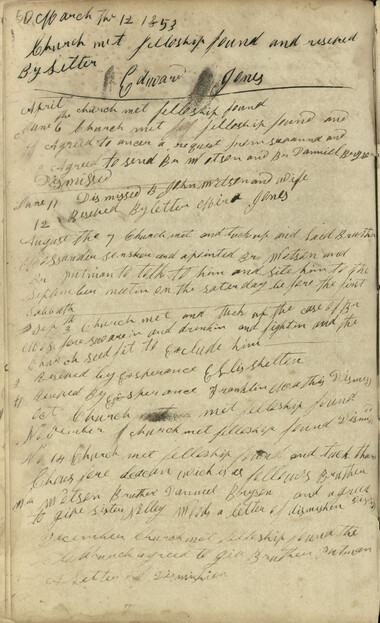 March the 12 1853
Church met felloship found and reseved
By Letter
Edward Jones
April the church met felloship found
June 6 Church met felloship found and
Agreed to ancer a request from and
Agreed to send Br Motson and Br Danniel Bryson
Dismissed
June 11 Dismissed B John Metson and wife
12 Reseved By letter Jones
August the 7 Church met and tuck up and said Bruther
and apointed Br Metson and
Br to talk to him and site him to the
September meetin on the saturday before the first
Sabbath
Sep 3 Church met and tuck up the case of Br
Moss fore swarein and drinkin and fightin and the
Church seed fit to Exclude him
Reseved by Exsperance
Reseved By Exsperance Franklin this Dismiss
Oct Church met felloship found
November church met felloship found Dismiss
No 14 Church met felloship and tuck thar
Choys fore deacon wich is as follows Bruther
Metson Bruther Danniel Bryson and agreed
to give sister a letter of dismishen
December Church met felloship found the
Church agreed to giv Bruther
A Letter of Dismishion